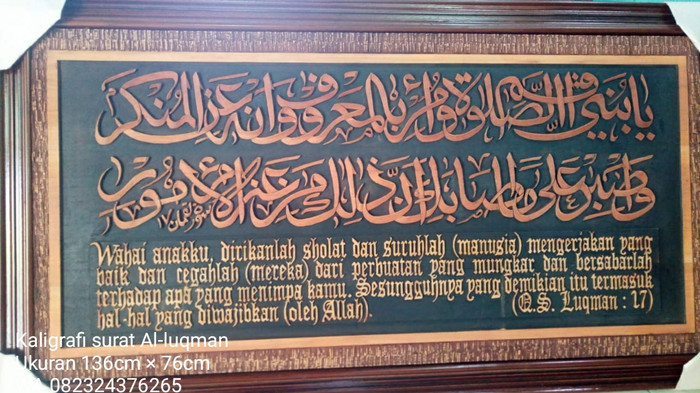 يا بني أقم الصلاة وأمر بالمعروف وانه عن المنكر
واصبر على ما أصابك إن ذلك من عزم الأمور
Wahai anakku, dirikanlah sholat dan suruhlah (manusia) mengerjakan yang
baik dan cegahlah (mereka) dari perbuatan yang mungkar dan bersabarlah
terhadap apa yang menimpa kamu. Sesungguhnya yang demikian itu termasuk
hal-hal yang diwajibkan (oleh Allah). (Q.S. Luqman : 17)
Kaligrafi surat Al-luqman
Ukuran 136cm × 76cm
082324376265